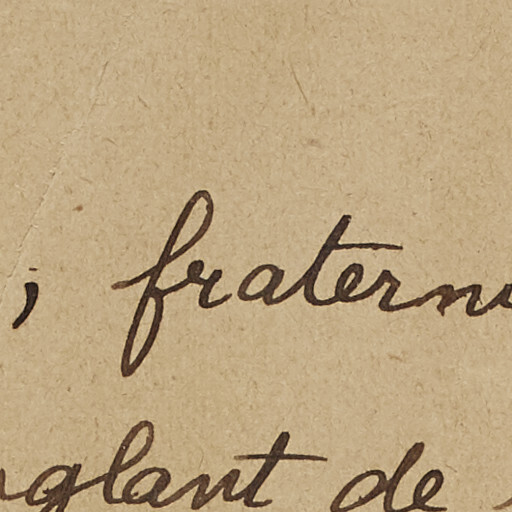 ; fraterni
glant de